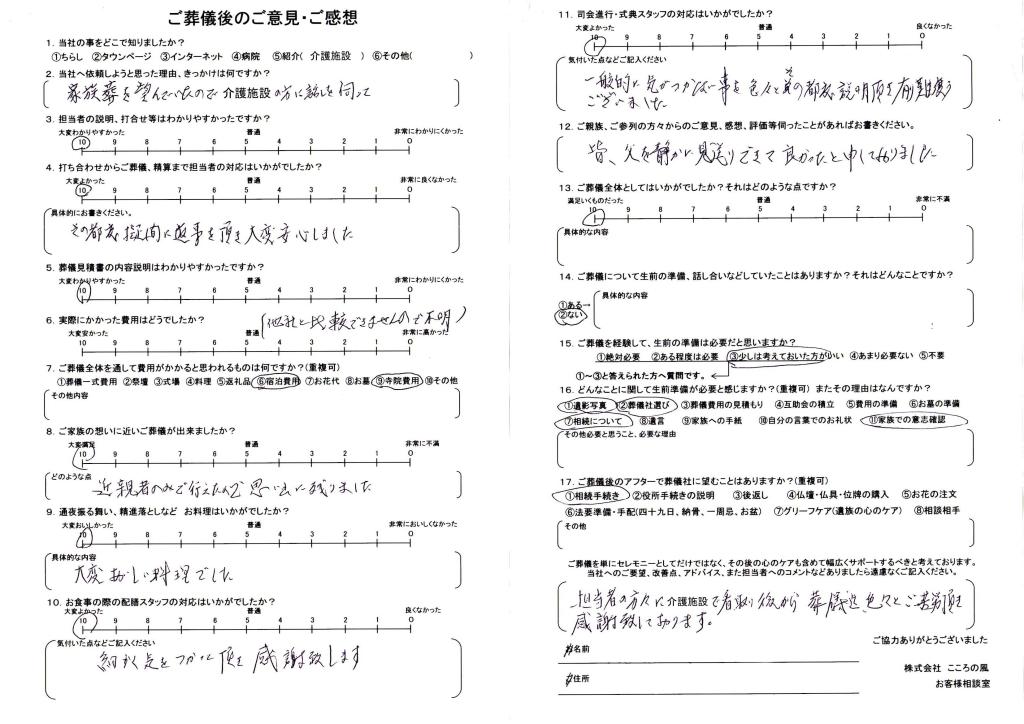 ご葬儀後のご意見・ご感想
1. 当社の事をどこで知りましたか？
①ちらし ②タウンページ ③インターネット ④病院 ⑤紹介( 介護施設 ) ⑥その他( )
2. 当社へ依頼しようと思った理由、きっかけは何ですか？
家族葬を望んでいたので 介護施設 の方に話しを伺って
3. 担当者の説明、打合せ等はわかりやすかったですか？
大変わかりやすかった 普通 非常にわかりにくかった
10 9 8 7 6 5 4 3 2 1 0
4. 打ち合わせからご葬儀、精算まで担当者の対応はいかがでしたか？
大変よかった 普通 非常に良くなかった
10 9 8 7 6 5 4 3 2 1 0
具体的にお書きください。
その都度 疑問に返事を頂き大変安心しました
5. 葬儀見積書の内容説明はわかりやすかったですか？
大変わかりやすかった 普通 非常にわかりにくかった
10 9 8 7 6 5 4 3 2 1 0
6. 実際にかかった費用はどうでしたか？
(他社と比較できませんので不明)
大変安かった 普通 非常に高かった
10 9 8 7 6 5 4 3 2 1 0
7. ご葬儀全体を通して費用がかかると思われるものは何ですか？(重複可)
①葬儀一式費用 ②祭壇 ③式場 ④料理 ⑤返礼品 ⑥宿泊費用 ⑦お花代 ⑧お墓 ⑨寺院費用 ⑩その他
その他内容
8. ご家族の想いに近いご葬儀が出来ましたか？
大変満足 普通 非常に不満
10 9 8 7 6 5 4 3 2 1 0
どのような点
近親者のみで行えたので 思い出に残りました
9. 通夜振る舞い、精進落としなど お料理はいかがでしたか？
大変おいしかった 普通 非常においしくなかった
10 9 8 7 6 5 4 3 2 1 0
具体的な内容
大変おいしい料理でした
10. お食事の際の配膳スタッフの対応はいかがでしたか？
大変よかった 普通 良くなかった
10 9 8 7 6 5 4 3 2 1 0
気付いた点などご記入ください
細かく点を つかって 頂き 感謝致します
11. 司会進行・式典スタッフの対応はいかがでしたか？
大変よかった 普通 良くなかった
10 9 8 7 6 5 4 3 2 1 0
気付いた点などご記入ください
一般的に気がつかない事を色々とその都度説明頂き有難う
ございました
12. ご親族、ご参列の方々からのご意見、感想、評価等伺ったことがあればお書きください。
皆、父を静かに見送りできて良かったと申しておりました
13. ご葬儀全体としてはいかがでしたか？それはどのような点ですか？
満足いくものだった 普通 非常に不満
10 9 8 7 6 5 4 3 2 1 0
具体的な内容
14. ご葬儀について生前の準備、話し合いなどしていたことはありますか？それはどんなことですか？
①ある→
②ない
具体的な内容
15. ご葬儀を経験して、生前の準備は必要だと思いますか？
①絶対必要 ②ある程度は必要 ③少しは考えておいた方がいい ④あまり必要ない ⑤不要
①～③と答えられた方へ質問です。
16. どんなことに関して生前準備が必要と感じますか？(重複可) またその理由はなんですか？
①遺影写真 ②葬儀社選び ③葬儀費用の見積もり ④互助会の積立 ⑤費用の準備 ⑥お墓の準備
⑦相続について ⑧遺言 ⑨家族への手紙 ⑩自分の言葉でのお礼状 ⑪家族での意志確認
その他必要と思うこと、必要な理由
17. ご葬儀後のアフターで葬儀社に望むことはありますか？(重複可)
①相続手続き ②役所手続きの説明 ③後返し ④仏壇・仏具・位牌の購入 ⑤お花の注文
⑥法要準備・手配(四十九日、納骨、一周忌、お盆) ⑦グリーフケア(遺族の心のケア) ⑧相談相手
その他
ご葬儀を単にセレモニーとしてだけではなく、その後の心のケアも含めて幅広くサポートするべきと考えております。
当社へのご要望、改善点、アドバイス、また担当者へのコメントなどありましたら遠慮なくご記入ください。
担当者の方々に 介護施設 で看取り後から 葬儀迄 色々とご苦労頂き
感謝致しております。
ご協力ありがとうございました
名前
住所
株式会社 こころの風
お客様相談室